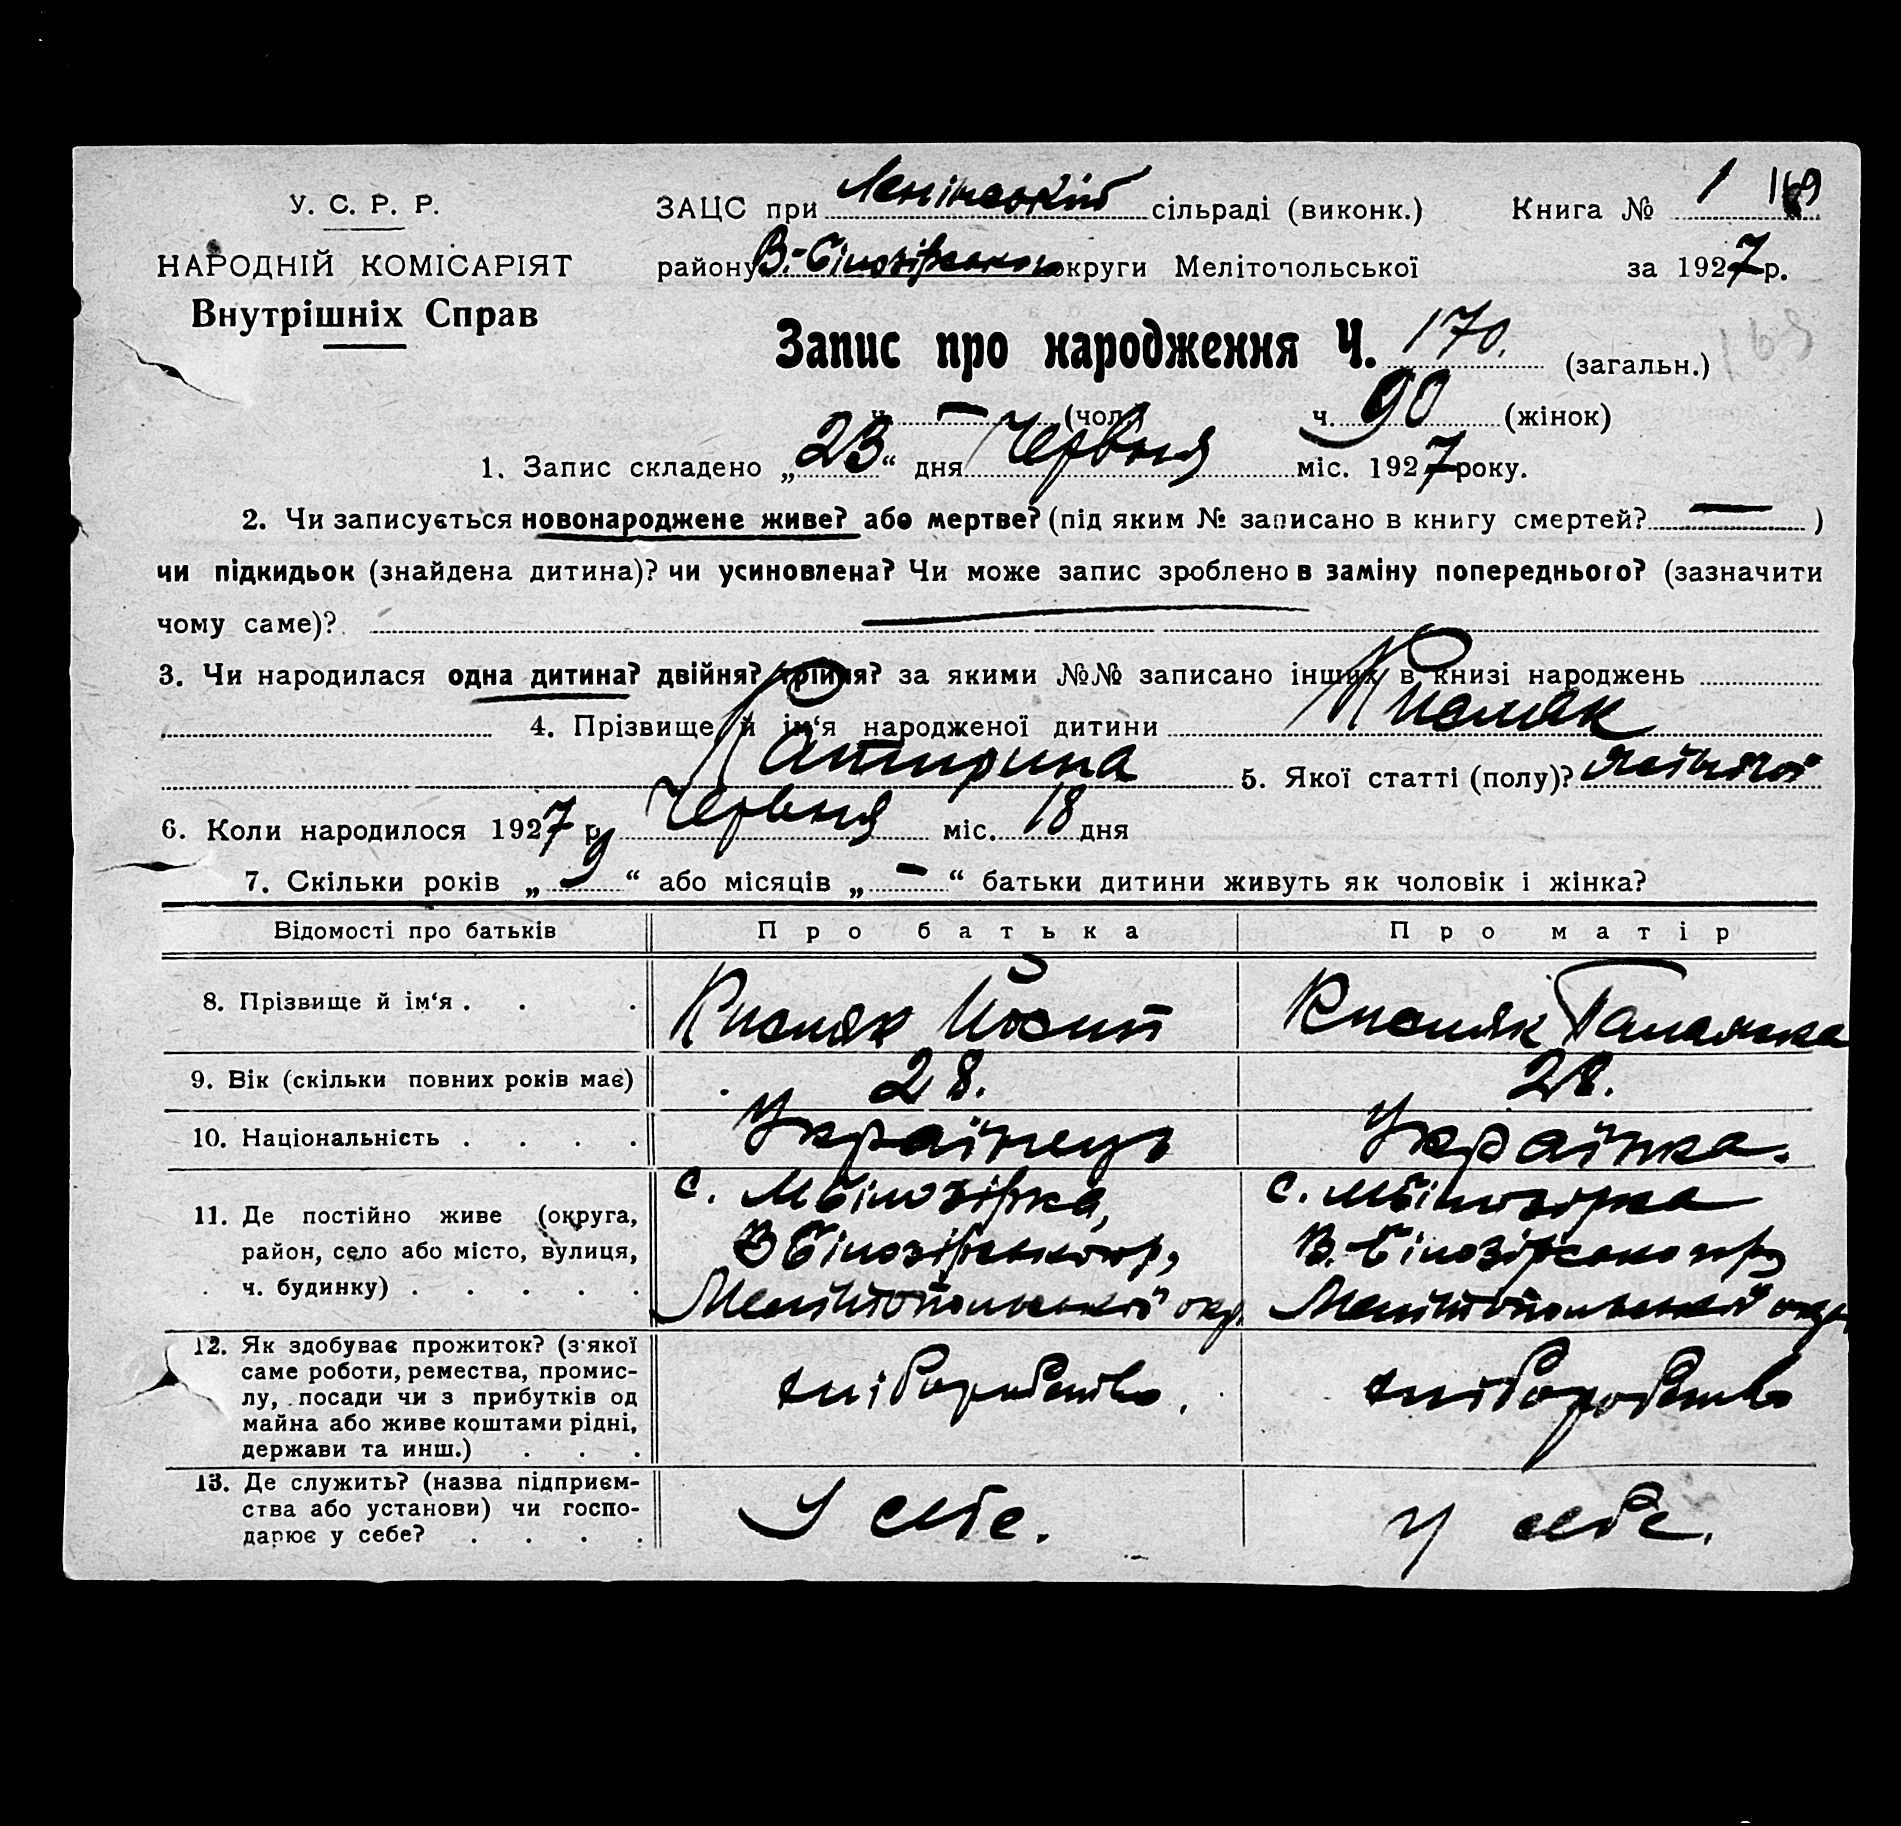 У. С. Р. Р.
НАРОДНІЙ КОМІСАРІЯТ
Внутрішніх Справ
ЗАЦС при Ленінський сільраді (виконк.) Книга № 1 169
району В.-Білозірського округи Мелітопольської за 1927 р.
Запис про народження Ч. 170. (загальн.)
ч. — (чол.) ч. 90 (жінок)
1. Запис складено „23“ дня Червня міс. 1927 року.
2. Чи записується новонароджене живе? або мертве? (під яким № записано в книгу смертей? — )
чи підкидьок (знайдена дитина)? чи усиновлена? Чи може запис зроблено в заміну попереднього? (зазначити
чому саме)?
3. Чи народилася одна дитина? двійня? трійня? за якими №№ записано інших в книзі народжень
4. Прізвище й ім‘я народженої дитини Кисляк
Катирина 5. Якої статті (полу)? жіночої
6. Коли народилося 1927 р. Червня міс. 18 дня
7. Скільки років „9“ або місяців „—“ батьки дитини живуть як чоловік і жінка?
Відомості про батьків Про батька Про матір
8. Прізвище й ім‘я . . . Кисляк Йосип Кисляк
9. Вік (скільки повних років має) 28. 28.
10. Національність . . . . Українець Українка.
11. Де постійно живе (округа,
район, село або місто, вулиця,
ч. будинку) . . . . .
с. МБілозірка,
В Білозірського р,
Мелітопольської окр.
с. МБілозірка
В.-Білозірського р,
Мелітопольської окр.
12. Як здобуває прожиток? (з якої
саме роботи, ремества, промис-
лу, посади чи з прибутків од
майна або живе коштами рідні,
держави та инш.) . . .
хліборобство.
хліборобство
13. Де служить? (назва підприєм-
ства або установи) чи госпо-
дарює у себе? . . . .
У себе.
у себе.